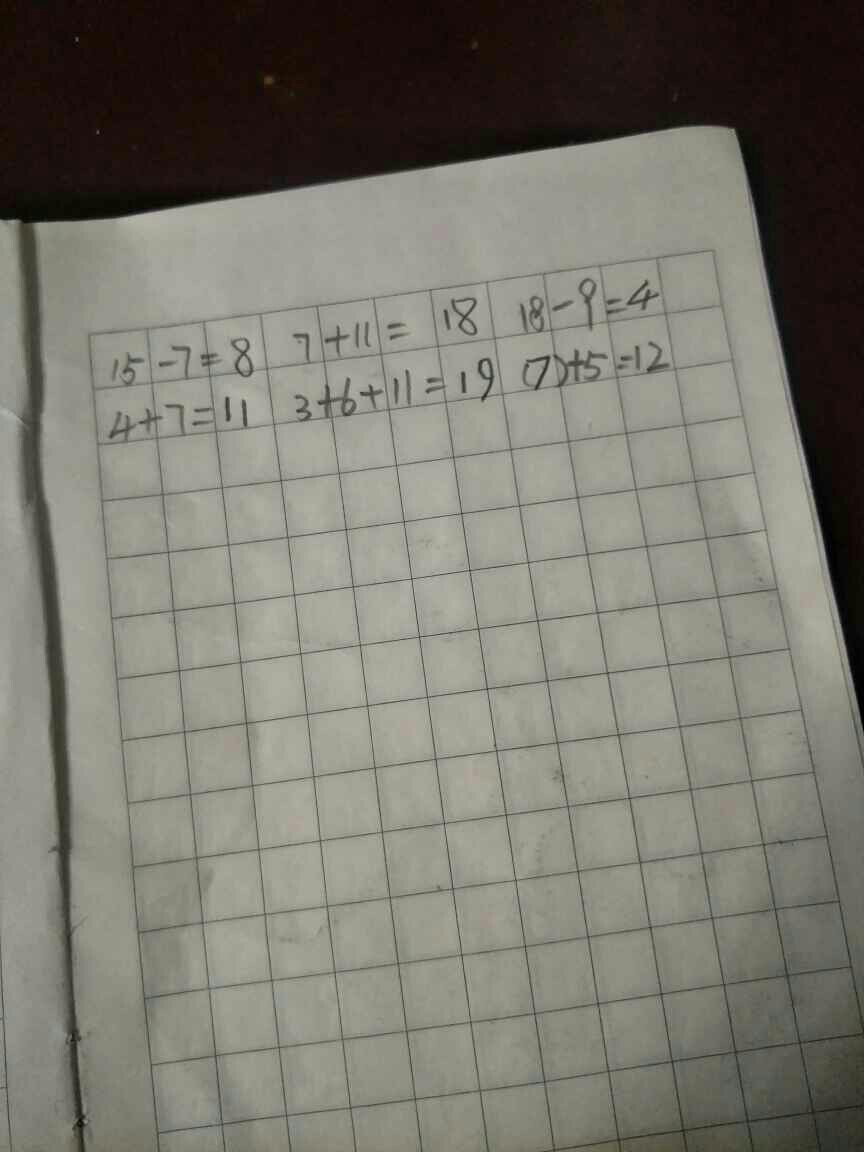 15-7=8 7+11=18 18-9=4
4+7=11 3+6+11=19 (7)+5=12